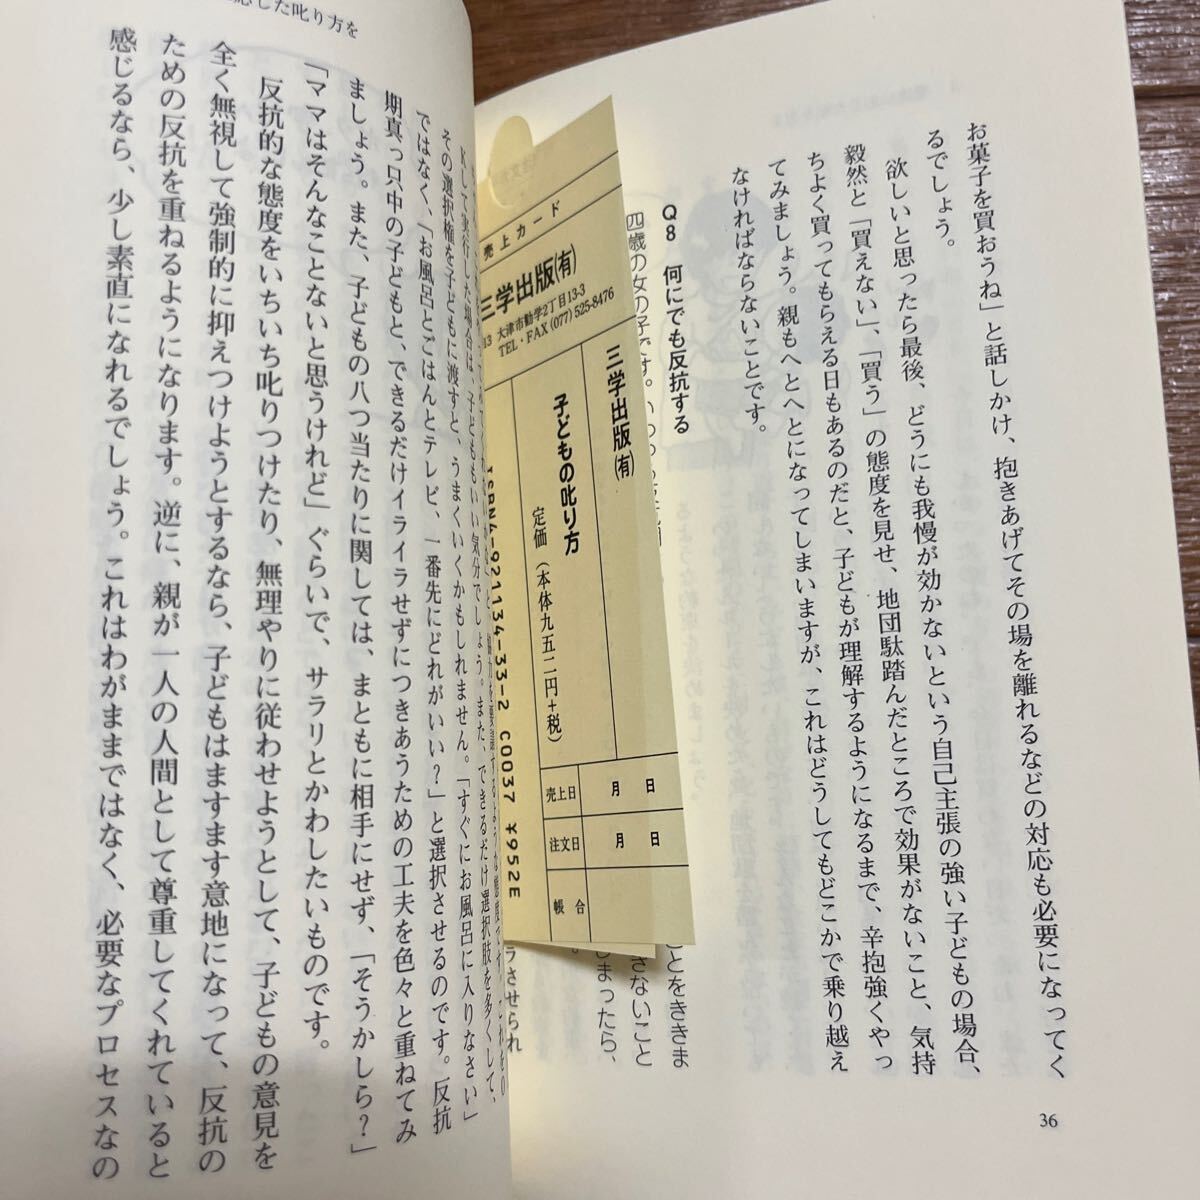 お菓子を買おうね」と話しかけ、抱きあげてその場を離れるなどの対応も必要になってく
るでしょう。
欲しいと思ったら最後、どうにも我慢が効かないという自己主張の強い子どもの場合、
毅然と「買えない」、「買う」の態度を見せ、地団駄踏んだところで効果がないこと、気持
ちよく買ってもらえる日もあるのだと、子どもが理解するようになるまで、辛抱強くやっ
てみましょう。親もへとへとになってしまいますが、これはどうしてもどこかで乗り越え
なければならないことです。
Q8 何にでも反抗する
四歳の女の子です。
ことをききま
さないこと
しまったら、
ラさせられ
36
売上カード
三学出版(有)
大津市勧学2丁目13-3
TEL・FAX(077)525-8476
三学出版(有)
子どもの叱り方
定価(本体九五二円+税)
売上日
月 日
注文日
月 日
帳合
ISBN4-921134-33-2 C0037 ¥952E
した叱り方を
して実行した場合は、子どももいい気分でしょう。また、できるだけ選択肢を多くして、
その選択権を子どもに渡すと、うまくいくかもしれません。「すぐにお風呂に入りなさい」
ではなく、「お風呂とごはんとテレビ、一番先にどれがいい?」と選択させるのです。反抗
期真っ只中の子どもと、できるだけイライラせずにつきあうための工夫を色々と重ねてみ
ましょう。また、子どもの八つ当たりに関しては、まともに相手にせず、「そうかしら?」
「ママはそんなことないと思うけれど」ぐらいで、サラリとかわしたいものです。
反抗的な態度をいちいち叱りつけたり、無理やりに従わせようとして、子どもの意見を
全く無視して強制的に抑えつけようとするなら、子どもはますます意地になって、反抗の
ための反抗を重ねるようになります。逆に、親が一人の人間として尊重してくれていると
感じるなら、少し素直になれるでしょう。これはわがままではなく、必要なプロセスなの